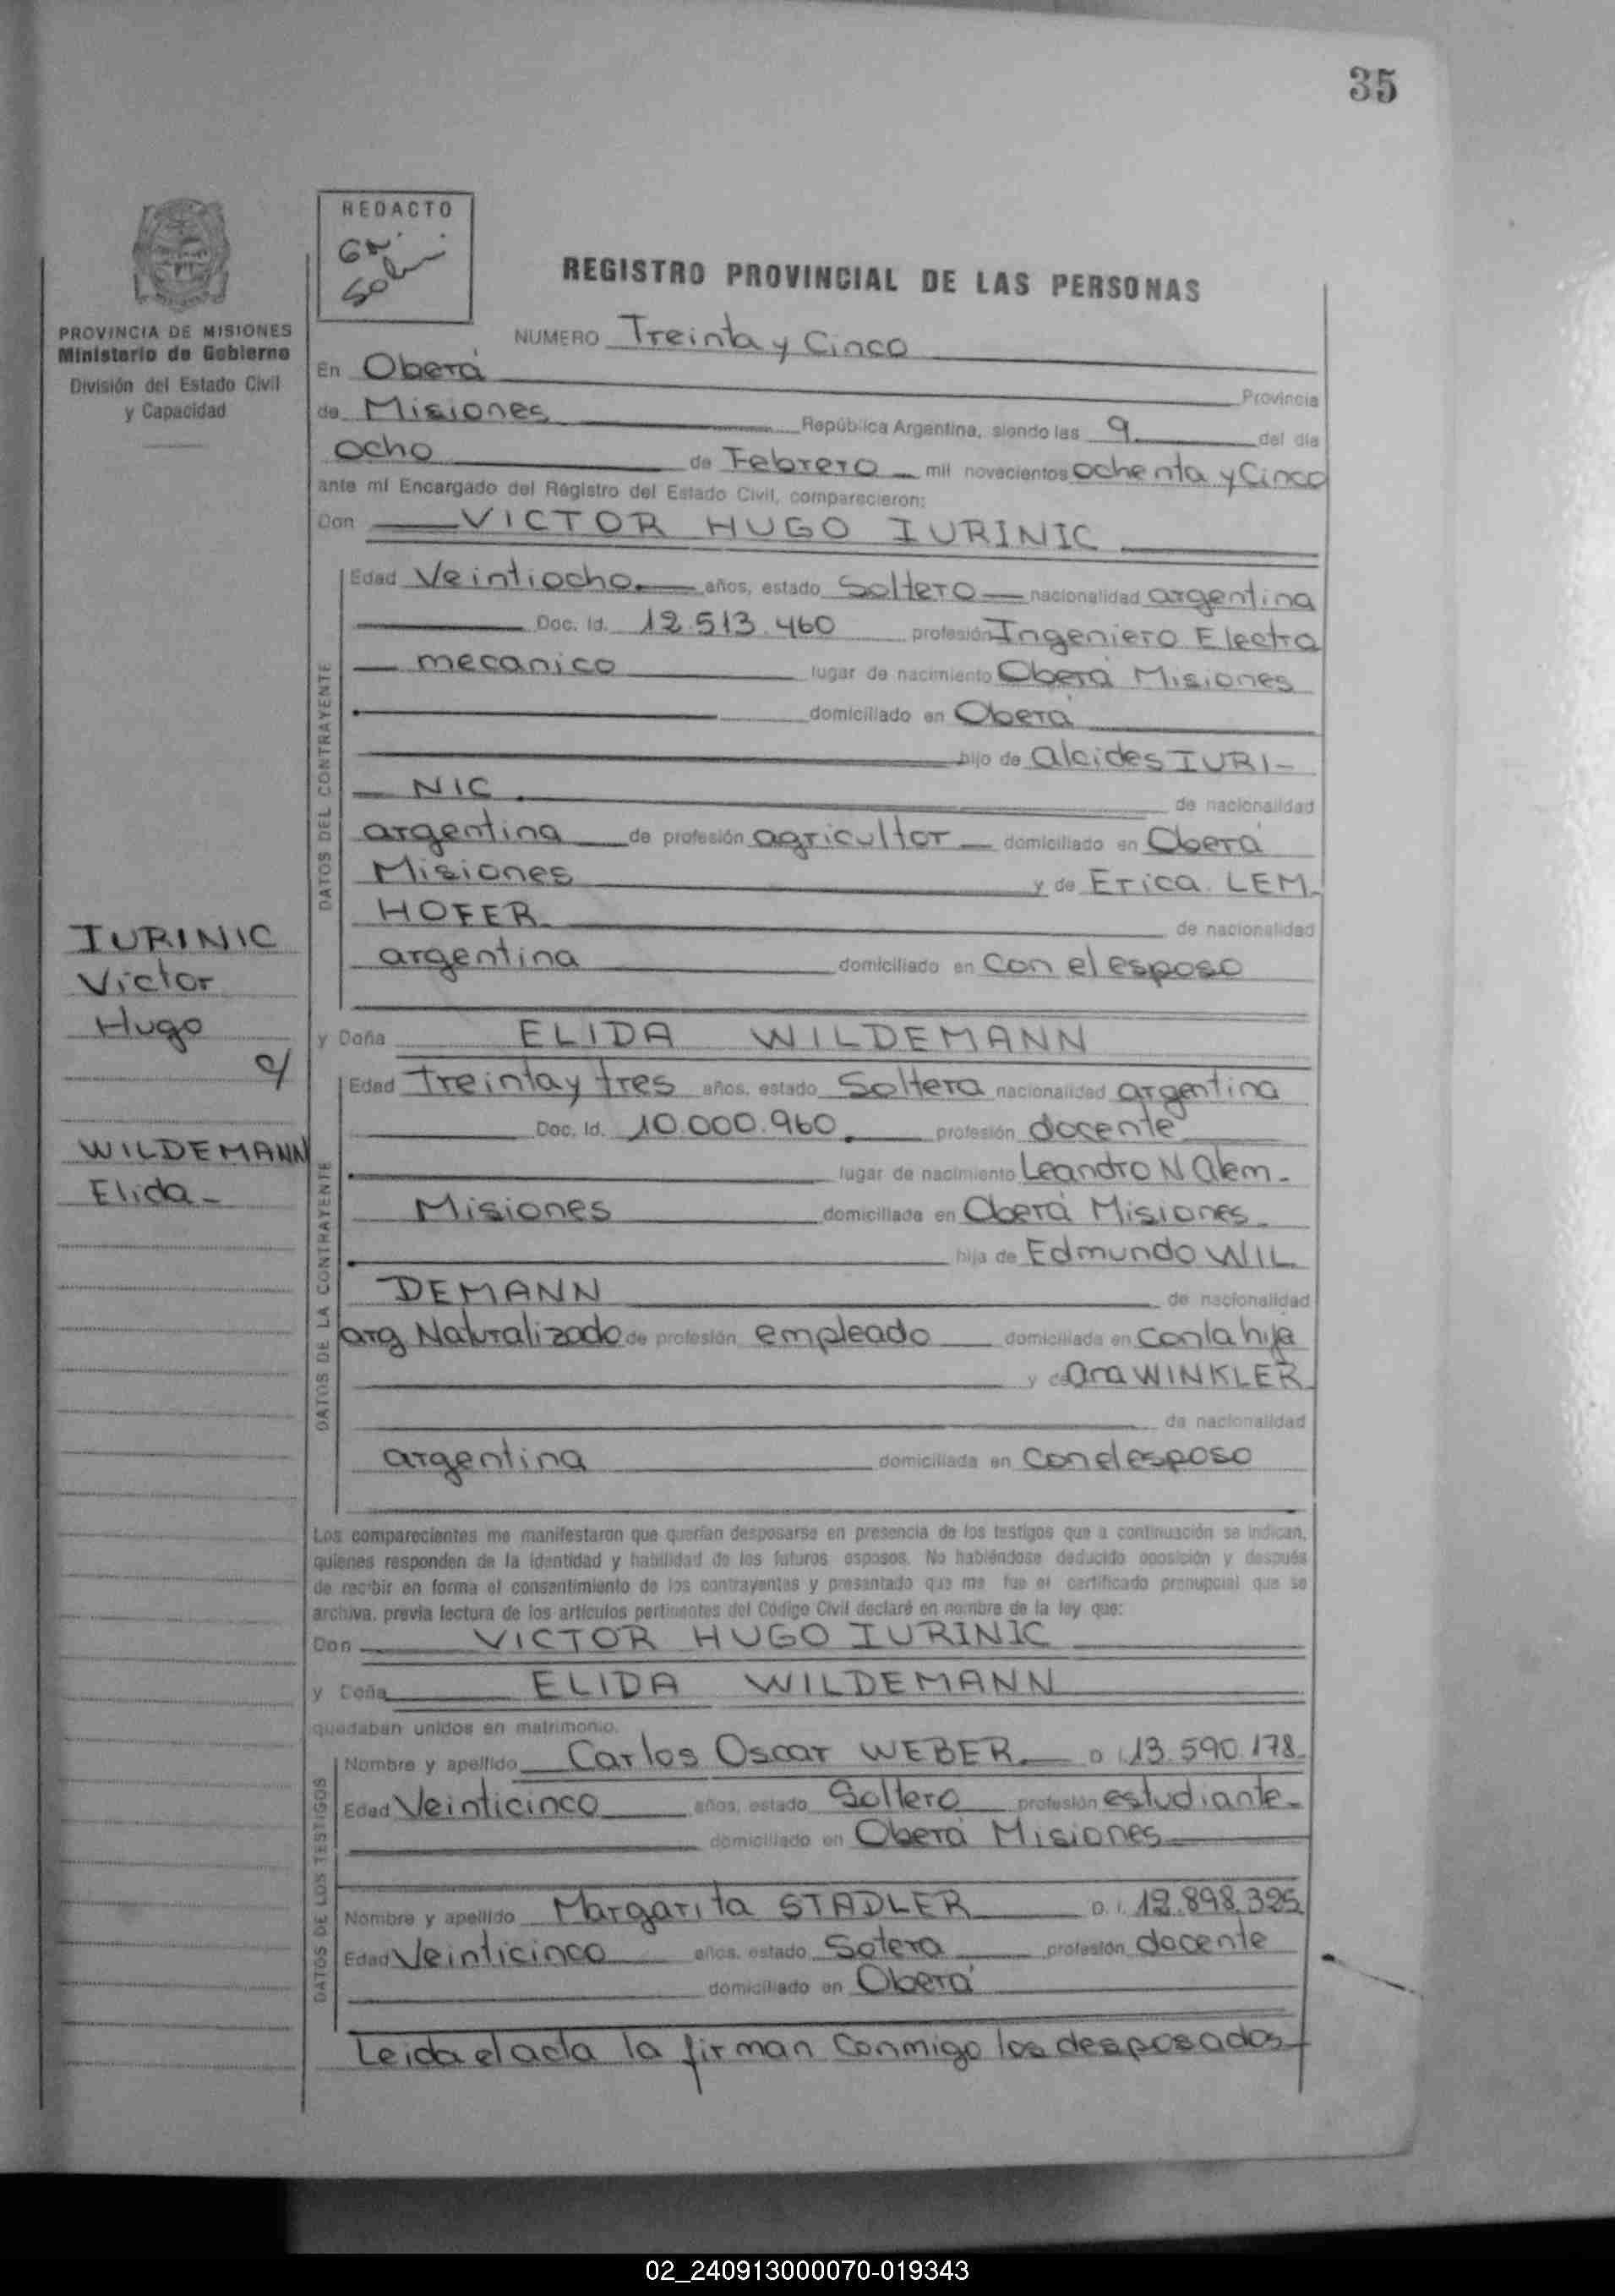 35
REDACTO
REGISTRO PROVINCIAL DE LAS PERSONAS
PROVINCIA DE MISIONES
Ministerio de Gobierno
División del Estado Civil
y Capacidad
NUMERO Treinta y Cinco
En Oberá Provincia
de Misiones República Argentina, siendo las 9 del día
ocho de Febrero mil novecientos ochenta y Cinco
ante mí Encargado del Registro del Estado Civil, comparecieron:
Don VICTOR HUGO IURINIC
DATOS DEL CONTRAYENTE
Edad Veintiocho años, estado Soltero nacionalidad argentina
Doc. Id. 12.513.460 profesión Ingeniero Electro
mecanico lugar de nacimiento Oberá Misiones
domiciliado en Oberá
hijo de Alcides IURI-
NIC de nacionalidad
argentina de profesión agricultor domiciliado en Oberá
Misiones y de Erica LEM-
HOFER de nacionalidad
argentina domiciliado en con el esposo
IURINIC
Victor
Hugo
c/
WILDEMANN
Elida-
y Doña ELIDA WILDEMANN
DATOS DE LA CONTRAYENTE
Edad Treinta y tres años, estado Soltera nacionalidad argentina
Doc. Id. 10.000.960 profesión docente
lugar de nacimiento Leandro N Alem-
Misiones domiciliada en Oberá Misiones
hija de Edmundo WIL
DEMANN de nacionalidad
arg Naturalizado de profesión empleado domiciliada en con la hija
y de Ana WINKLER
de nacionalidad
argentina domiciliada en con el esposo
Los comparecientes me manifestaron que querían desposarse en presencia de los testigos que a continuación se indican,
quienes responden de la identidad y habilidad de los futuros esposos. No habiéndose deducido oposición y después
de recibir en forma el consentimiento de los contrayentes y presentado que me fue el certificado prenupcial que se
archiva, previa lectura de los artículos pertinentes del Código Civil declaré en nombre de la ley que:
Don VICTOR HUGO IURINIC
y Doña ELIDA WILDEMANN
quedaban unidos en matrimonio.
DATOS DE LOS TESTIGOS
Nombre y apellido Carlos Oscar WEBER D.I. 13.590.178
Edad Veinticinco años, estado Soltero profesión estudiante
domiciliado en Oberá Misiones
Nombre y apellido Margarita STADLER D.I. 12.898.325
Edad Veinticinco años, estado Sotera profesión docente
domiciliado en Oberá
Leida el acta la firman Conmigo los desposados
02_240913000070-019343